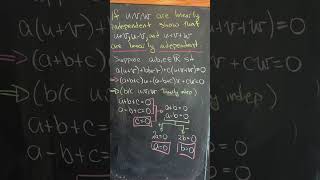 If u,v,w are linearly
independent show that
u+v, u-v, and u+v+w
are linearly independent.
Suppose a,b,c∈ℝ st
a(u+v)+b(u-v)+c(u+v+w)=0
⇒(a+b+c)u+(a-b+c)v+cw=0
⇒(b/c u,v,w linearly indep.)
a+b+c=0
a-b+c=0
c=0
a+b=0
a-b=0
2a=0
a=0
2b=0
b=0